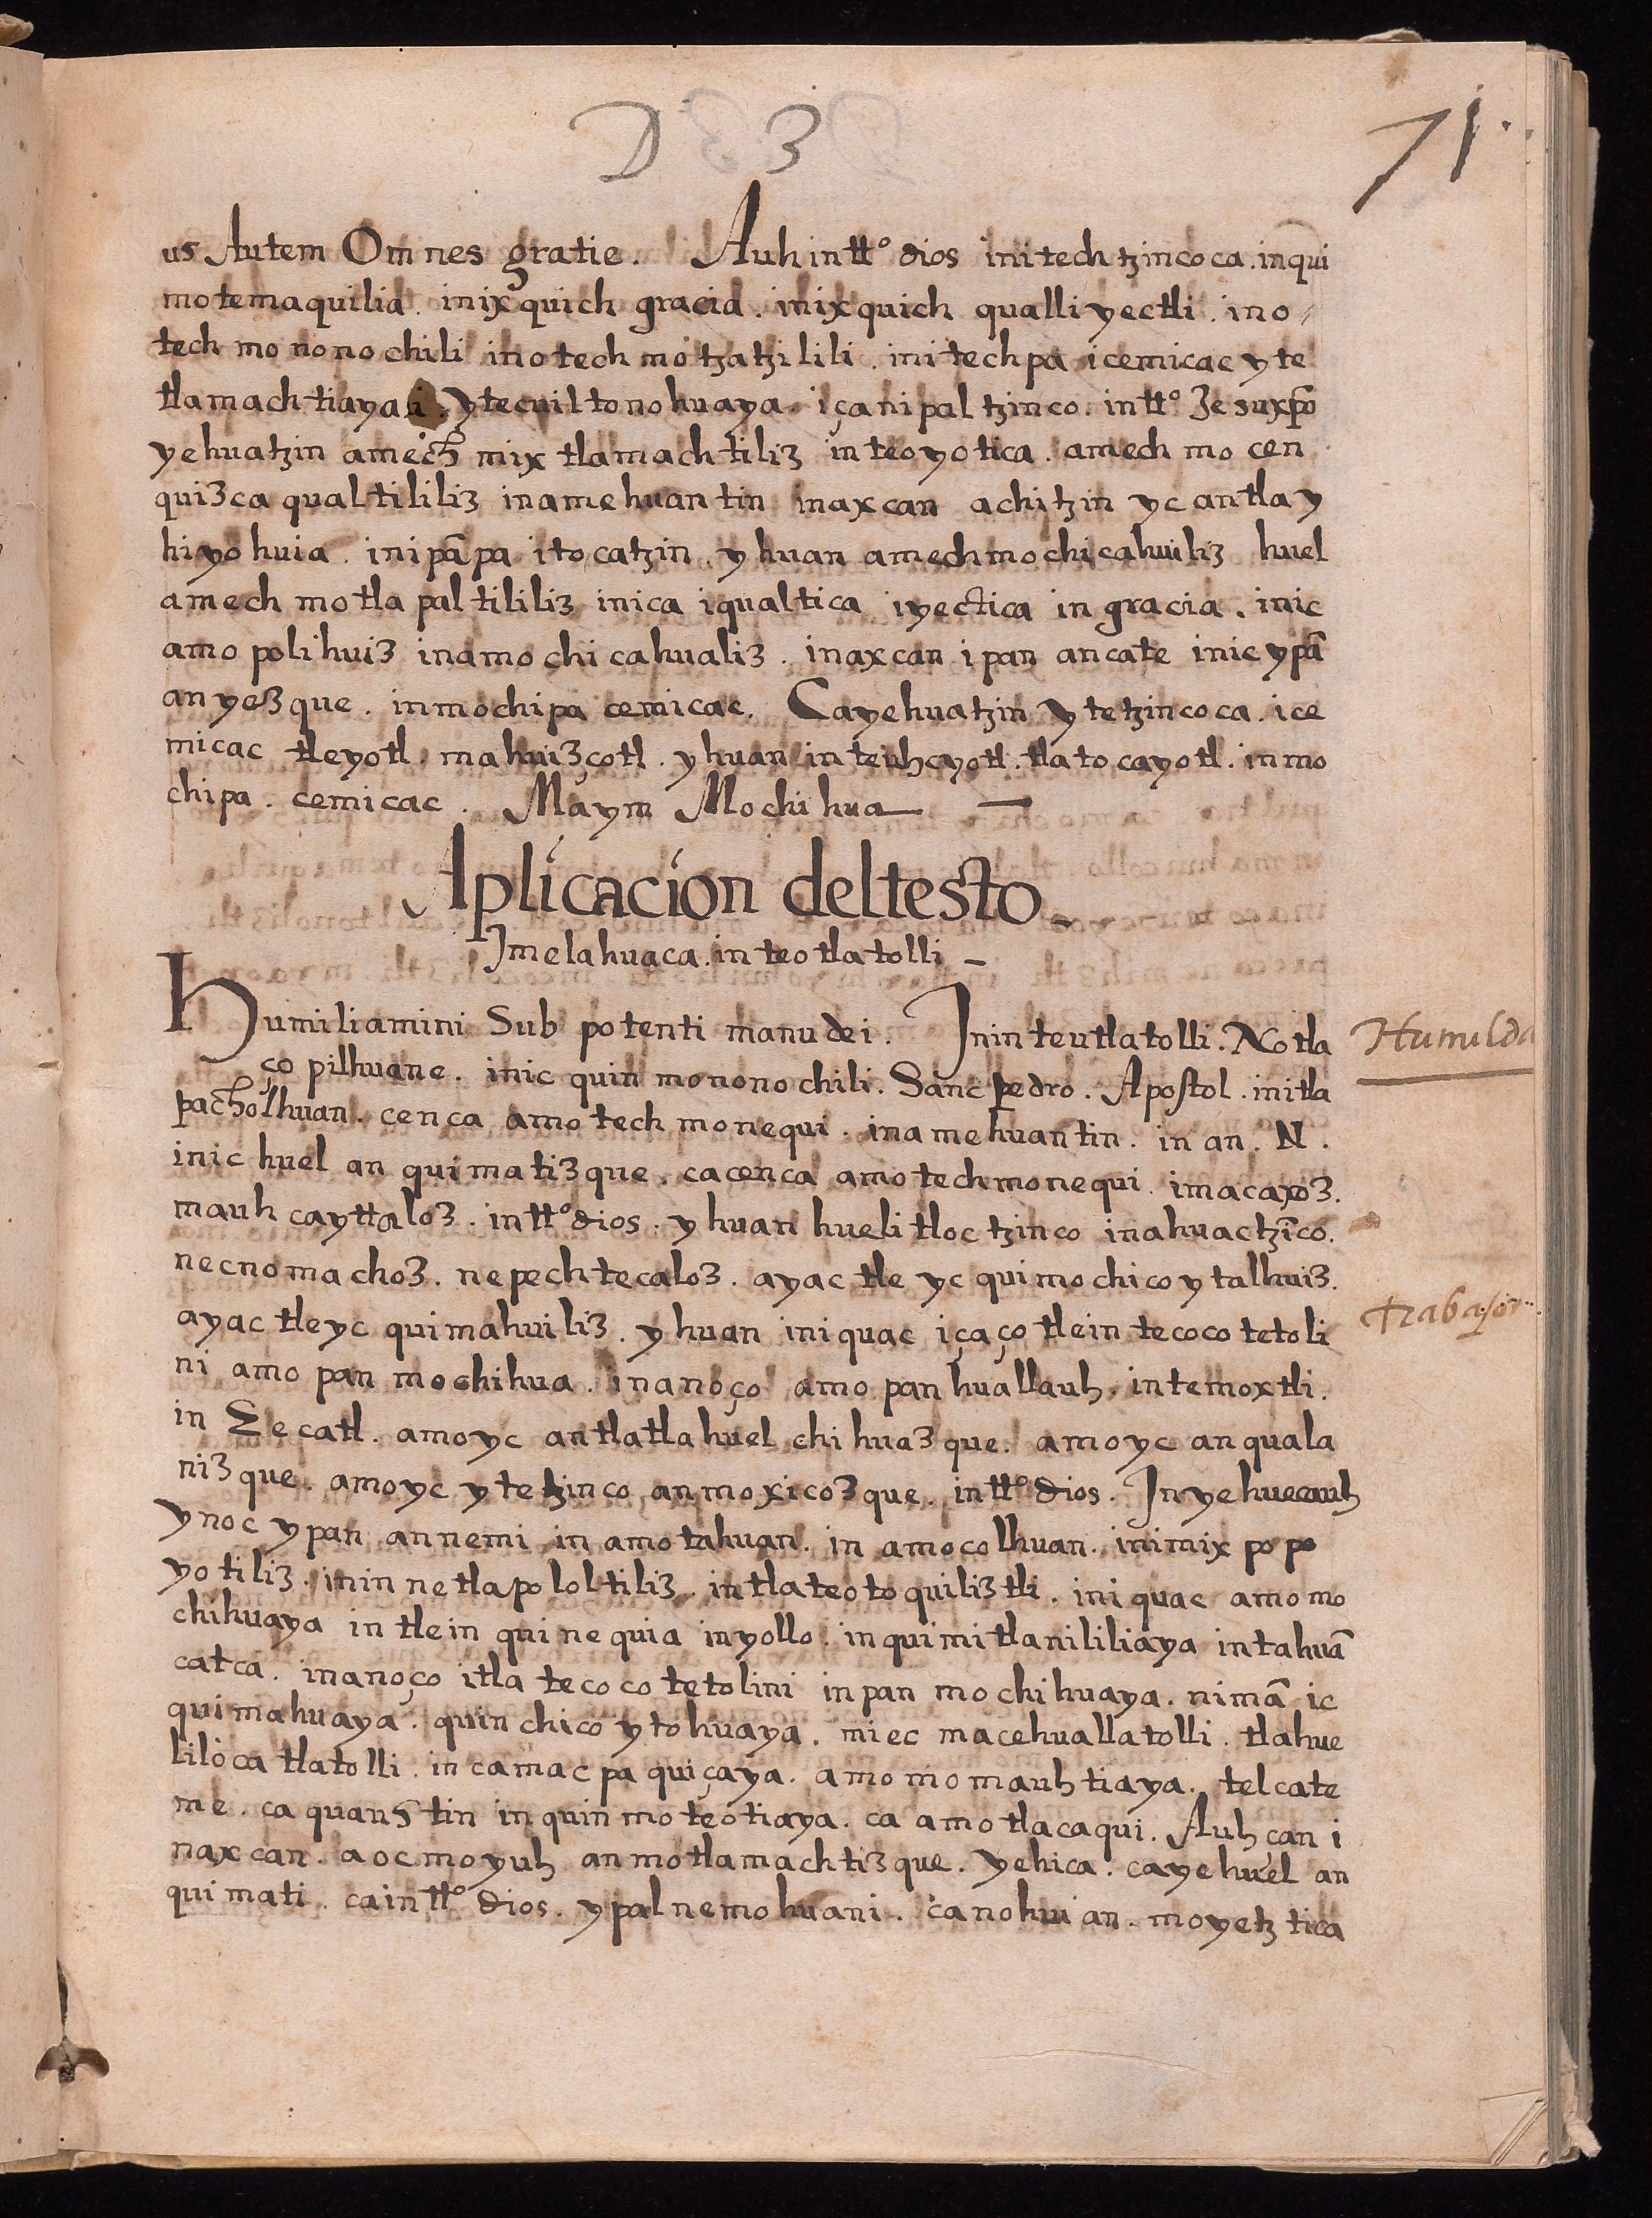 D 3
71.
us Autem Omnes gratie. Auh in tto dios initech tzinco ca. in qui
motemaquilia. inixquich gracia. inixquich qualli yectli. ino
tech mo nonochili inotech motzatzilili. initechpa icemicac yte
tlamachtiaya ytecuiltonohuaya. içanipaltzinco. in tto Jesuxpo
yehuatzin amech mixtlamachtiliz in teoyotica. amech mo cen
quizca qualtililiz inamehuantin inaxcan achitzin yc antlay
hiyohuia. inipãpa itocatzin. yhuan amechmochicahuiliz huel
amech motlapaltililiz inica iqualtica iyectica in gracia. inic
amo polihuiz inamochicahualiz. inaxcan ipan ancate inic ypã
anyezque. inmochipa cemicac. Cayehuatzin ytetzinco ca. ice
micac tleyotl. mahuizçotl. yhuan in teuhcyotl. tlatocayotl. inmo
chipa. cemicac. Maym Mochihua
Aplicacion deltesto
Jmelahuaca. in teotlatolli
Humiliamini Sub potenti manu dei. Inin teutlatolli. Notla
ço pilhuane. inic quin mononochili. Sanc pedro. Apostol. initla
pacholhuan. cenca amotech monequi. inamehuantin. in an. N.
inic huel an quimatizque. cacenca amotechmonequi. imacaxoz.
mauhcayttaloz. in tto dios. yhuan huelitloctzinco inahuactzĩco.
necnomachoz. nepechtecaloz. ayac tle yc quimochicoytalhuiz.
ayac tleyc quimahuiliz. yhuan iniquac içaço tlein tecoco tetoli
ni amo pan mochihua. inanoço amo panhuallauh. intemoxtli.
in Eecatl. amoyc antlatlahuelchihuazque. amoyc anquala
nizque. amoyc ytetzinco anmoxicozque. in tto dios. In yehuecauh
ynoc ypan annemi in amotahuan. in amocolhuan. inimixpopo
yotiliz. inin netlapololtiliz. intlateotoquiliztli. iniquac amo mo
chihuaya in tlein quinequia inyollo. inquimitlanililiaya intahuã
catca. inanoço itla tecoco tetolini inpan mochihuaya. nimã ic
quimahuaya. quinchicoytohuaya. miec macehuallatolli. tlahue
liloca tlatolli. in camacpa quiçaya. amo momauhtiaya. telcate
me. ca quauhtin in quinmoteotiaya. ca amo tlacaqui. Auh çan i
naxcan. aocmoyuh anmotlamachtizque. yehica. cayehuel an
quimati. cain tto dios. ypalnemohuani. canohuian. moyetztica
Humilda
trabajos